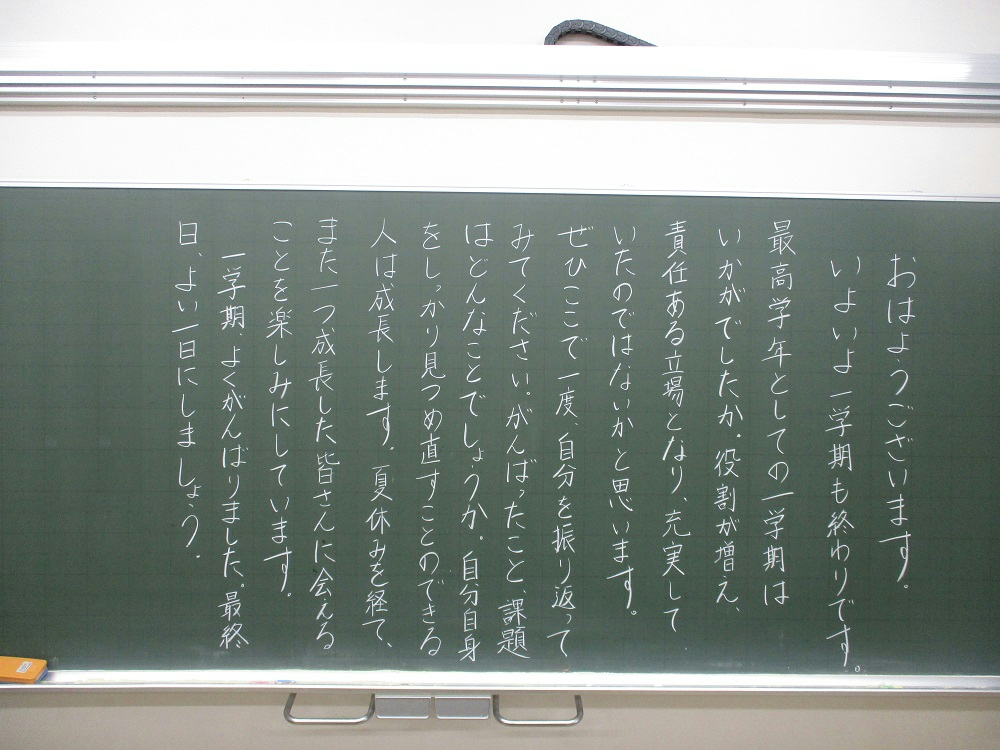 おはようございます。
いよいよ一学期も終わりです。
最高学年としての一学期は
いかがでしたか。役割が増え、
責任ある立場となり、充実して
いたのではないかと思います。
ぜひここで一度、自分を振り返って
みてください。がんばったこと、課題
はどんなことでしょうか。自分自身
をしっかり見つめ直すことのできる
人は成長します。夏休みを経て、
また一つ成長した皆さんに会える
ことを楽しみにしています。
一学期、よくがんばりました。最終
日、よい一日にしましょう。